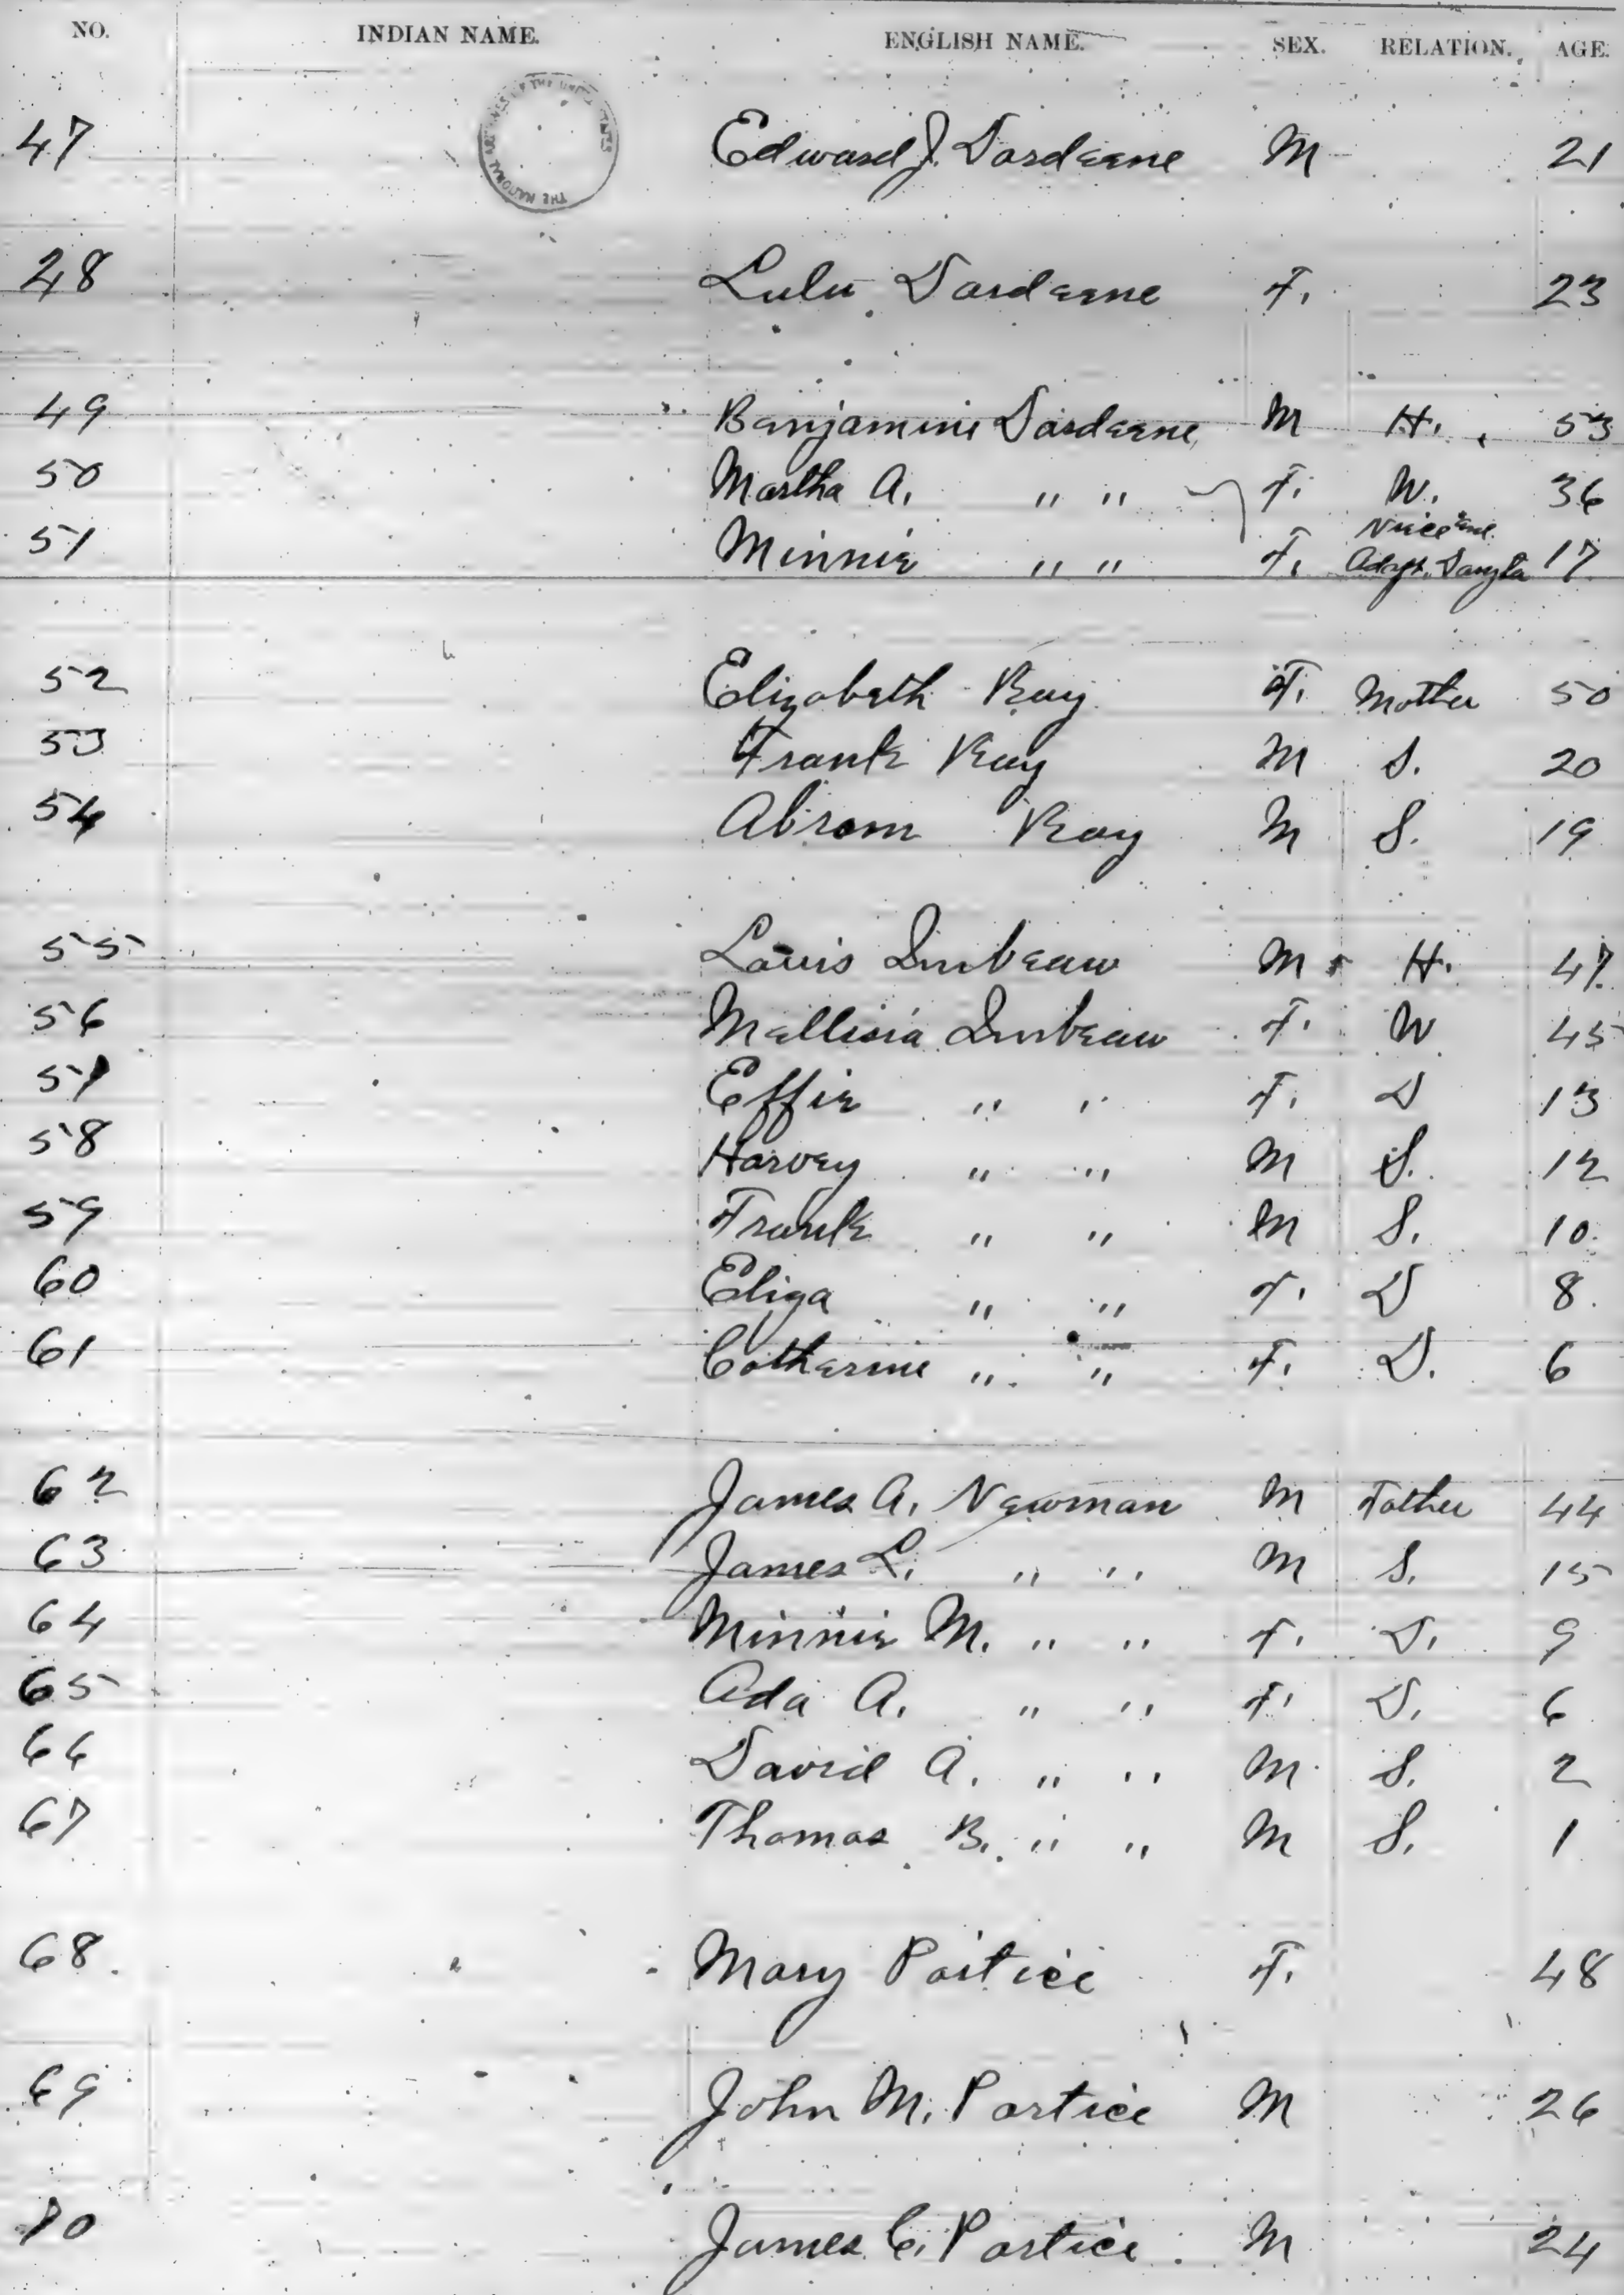 NO. INDIAN NAME. ENGLISH NAME. SEX. RELATION. AGE.
THE NATIONAL ARCHIVES OF THE UNITED STATES
47 Edward J. Dardeene M 21
48 Lulu Dardeene F. 23
49 Benjamine Dardeene M H. 53
50 Martha A. " " F. W. 36
51 Minnie " " F. Niece and Adopt. Daugta 17
52 Elizabeth Ray F. Mother 50
53 Frank Ray M S. 20
54 Abram Ray M S. 19
55 Louis Imbeau M H. 47
56 Mellisia Imbeau F. W 45
57 Effie " " F. D 13
58 Harvey " " M S. 12
59 Frank " " M S. 10
60 Eliza " " F. D 8
61 Catherine " " F. D. 6
62 James A. Newman M Father 44
63 James L. " " M S. 15
64 Minnie M. " " F. D. 9
65 Ada A. " " F. D. 6
66 David A. " " M S. 2
67 Thomas B. " " M S. 1
68 Mary Partice F. 48
69 John M. Partice M 26
70 James C. Partice M 24